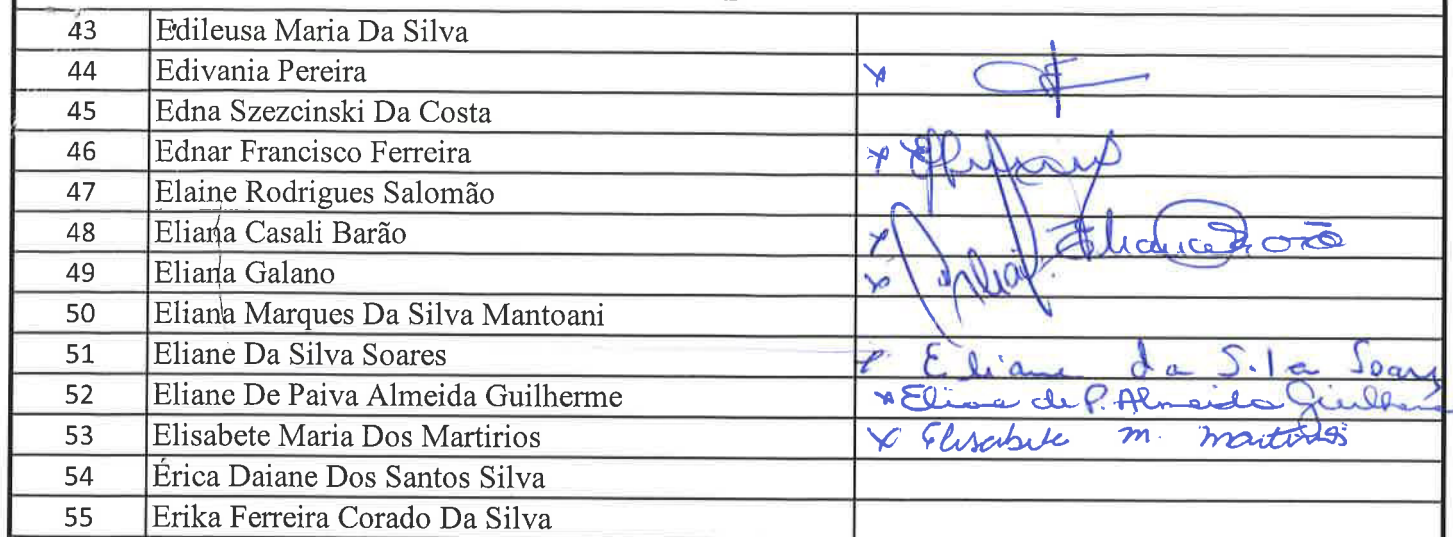 43 Edileusa Maria Da Silva
44 Edivania Pereira x
45 Edna Szezcinski Da Costa
46 Ednar Francisco Ferreira x
47 Elaine Rodrigues Salomão
48 Eliana Casali Barão x
49 Eliana Galano x
50 Eliana Marques Da Silva Mantoani
51 Eliane Da Silva Soares x Eliane da Sila Soars
52 Eliane De Paiva Almeida Guilherme x Eliane de P. Almeida Guilherme
53 Elisabete Maria Dos Martirios x Elisabete M. Martirios
54 Érica Daiane Dos Santos Silva
55 Erika Ferreira Corado Da Silva